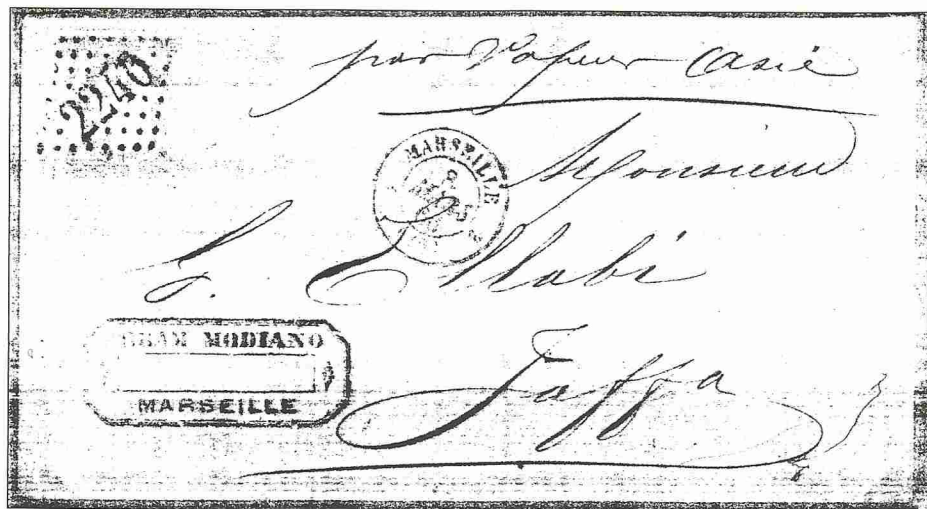 2240
par Vapeur Asie
MARSEILLE
Monsieur
MODIANO
MARSEILLE
Jaffa